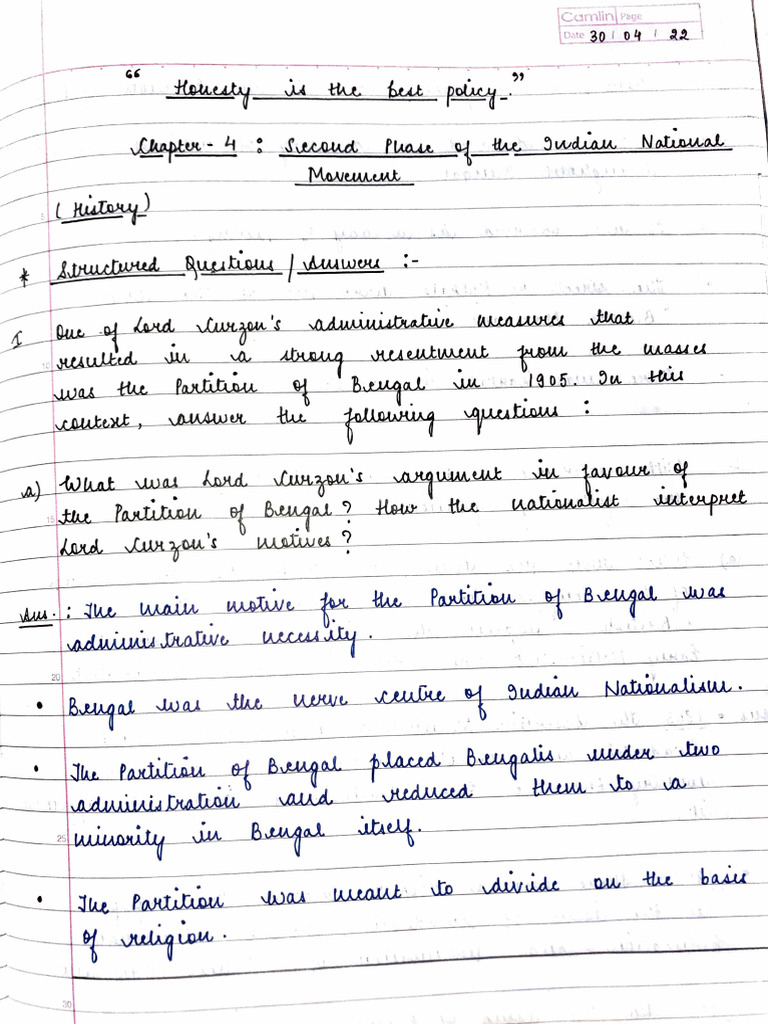 Camlin Page
Date 30 / 04 / 22
" Honesty is the best policy."
Chapter - 4 : Second Phase of the Indian National
Movement
(History)
* Structured Questions / Answers :-
I One of Lord Curzon's administrative measures that
resulted in a strong resentment from the masses
was the Partition of Bengal in 1905. In this
context, answer the following questions :
a) What was Lord Curzon's argument in favour of
the Partition of Bengal? How the nationalist interpret
Lord Curzon's motives?
Ans. : The main motive for the Partition of Bengal was
administrative necessity.
• Bengal was the nerve centre of Indian Nationalism.
• The Partition of Bengal placed Bengalis under two
administration and reduced them to a
minority in Bengal itself.
• The Partition was meant to divide on the basis
of religion.